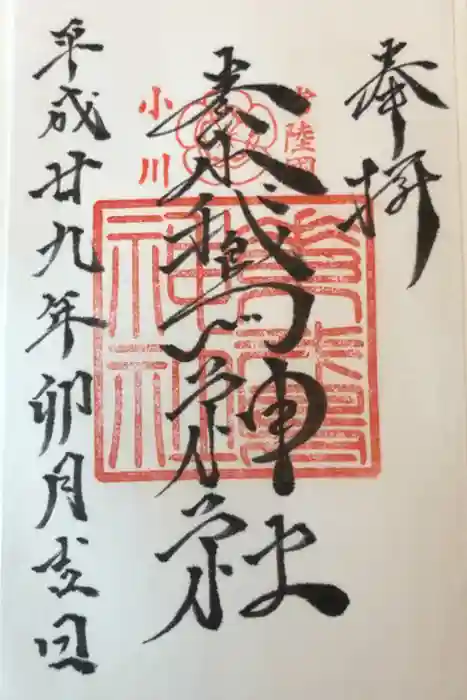 奉拝
常陸国
小川
素鵞神社
素鵞神社
平成廿九年卯月日